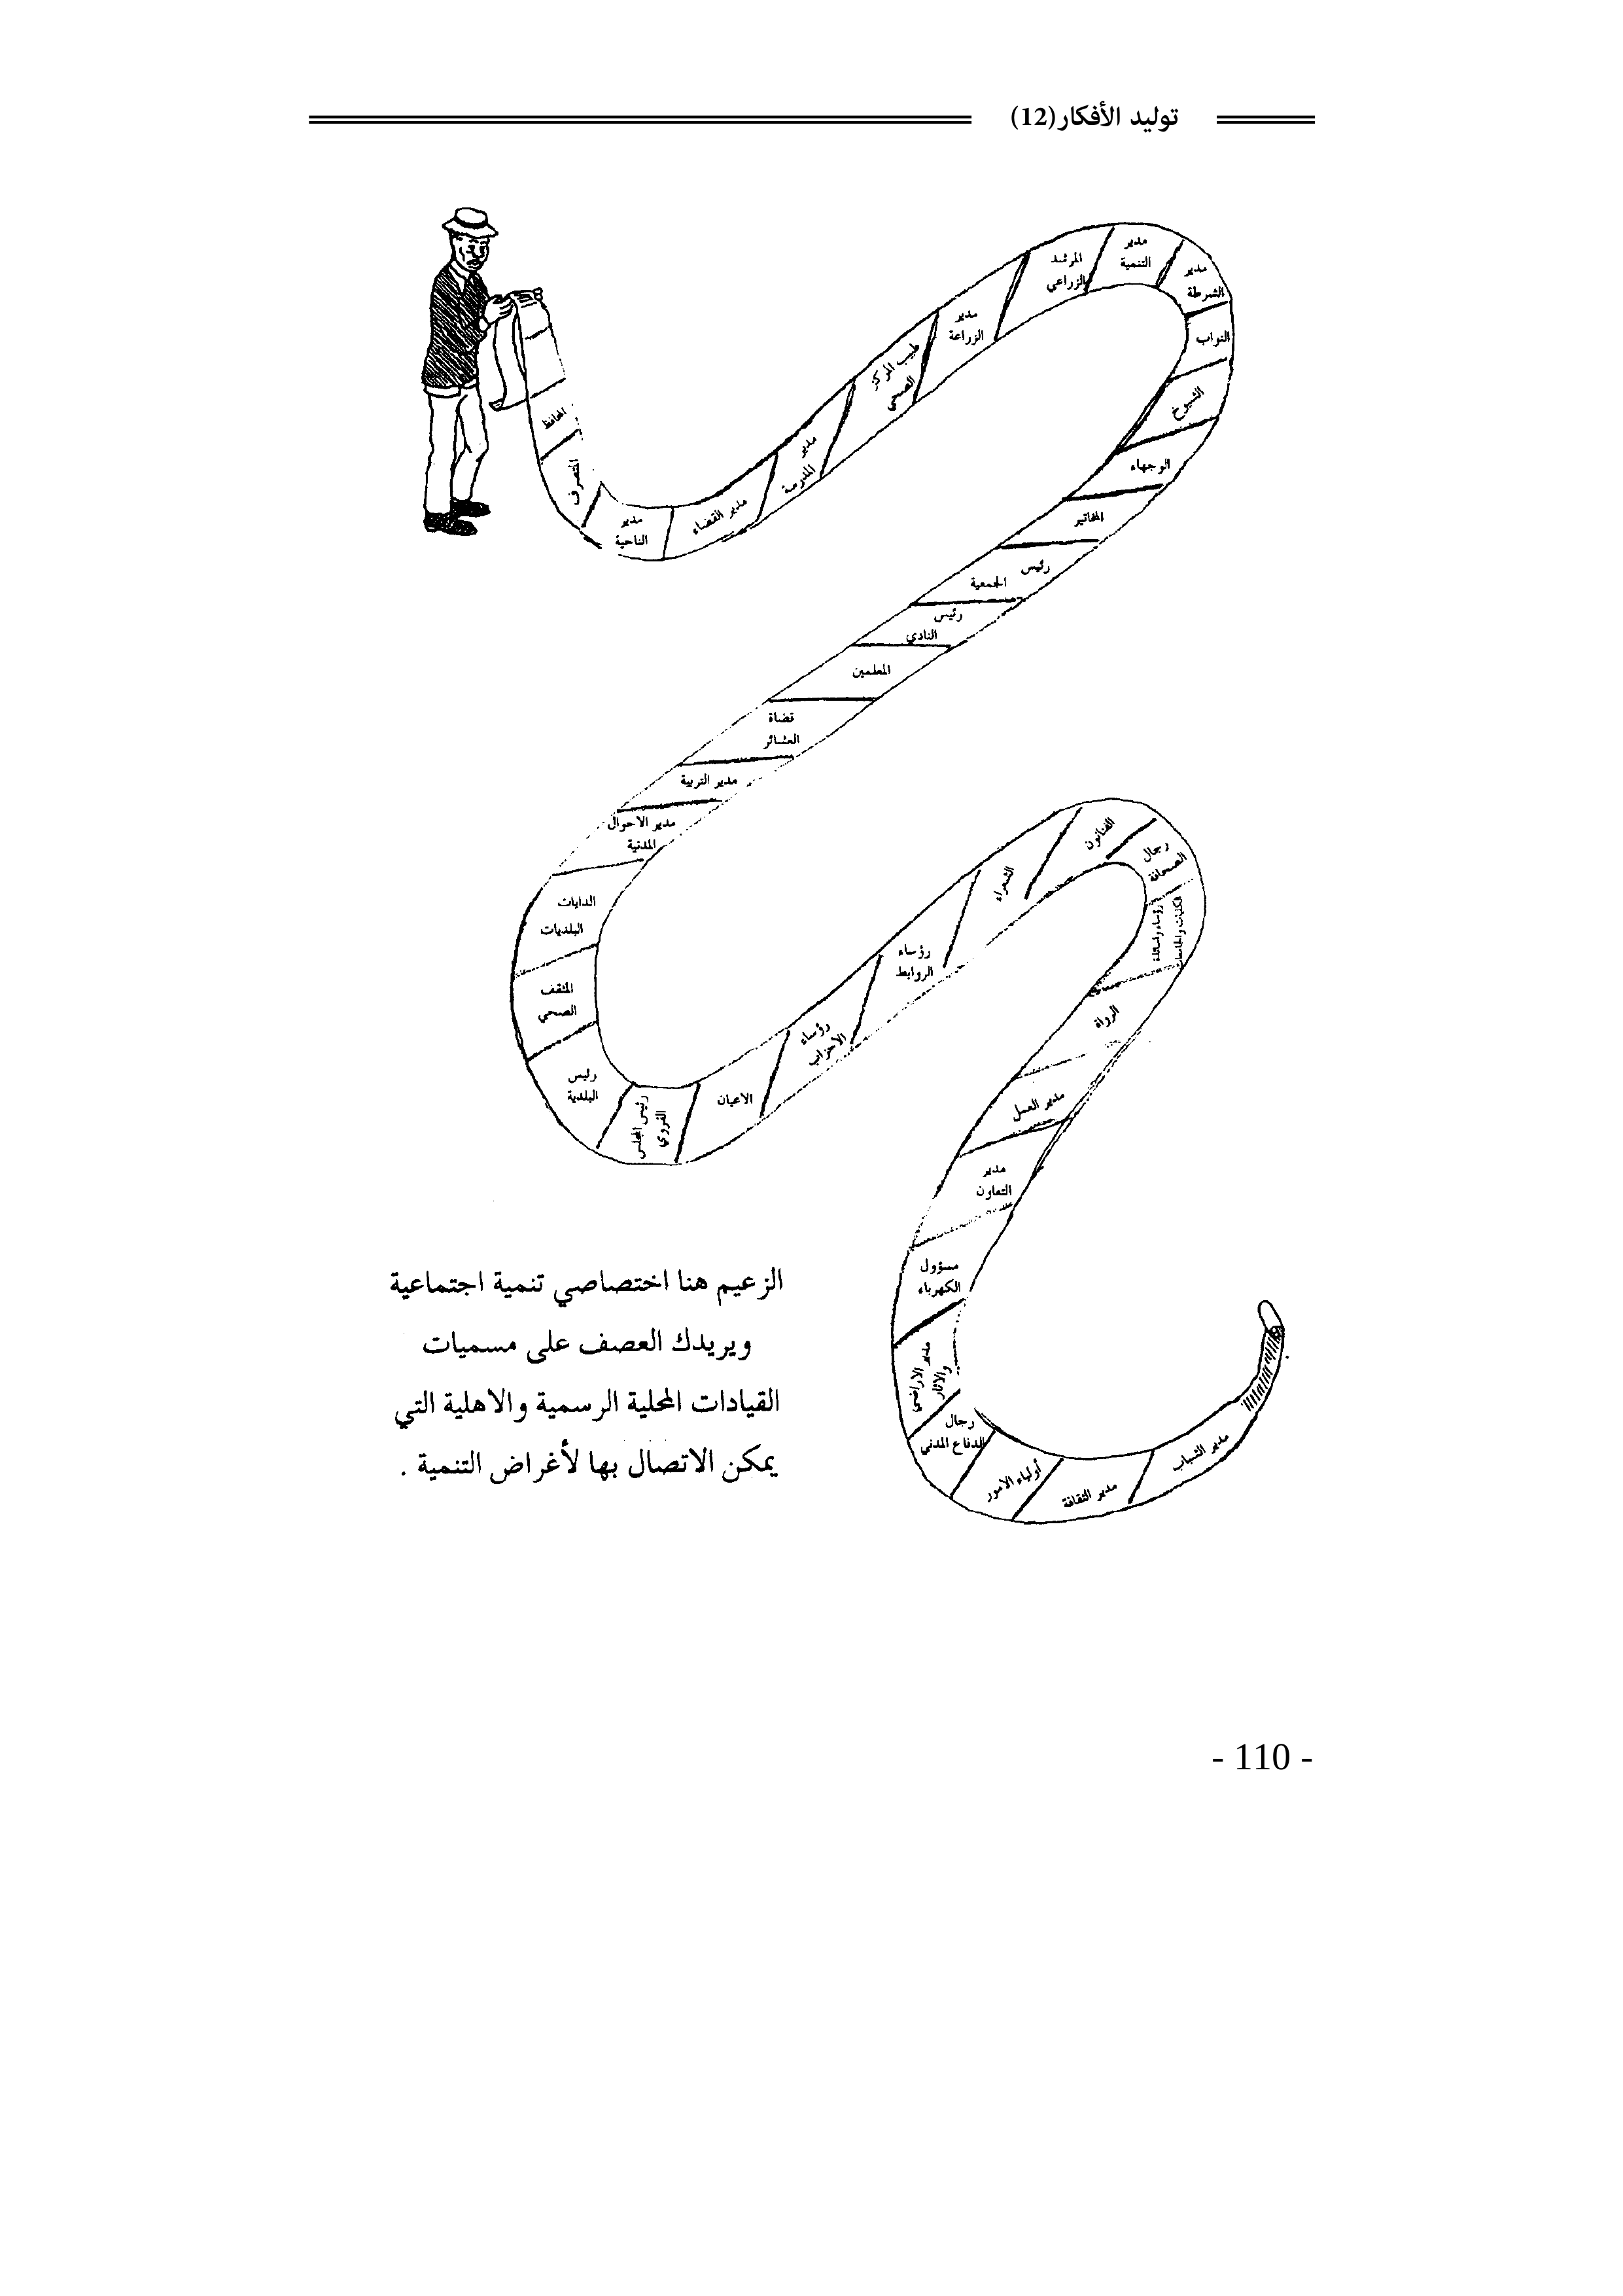 توليد الأفكار(12)
المحافظ
المتصرف
مدير
الناحية
مدير القضاء
مدير
المدرسة
طبيب المركز
الصحي
مدير
الزراعة
المرشد
الزراعي
مدير
التنمية
مدير
الشرطة
النواب
الشيوخ
الوجهاء
المخاتير
رئيس
الجمعية
رئيس
النادي
المعلمين
قضاة
العشائر
مدير التربية
مدير الاحوال
المدنية
الدايات
البلديات
المثقف
الصحي
رئيس
البلدية
رئيس المجلس
القروي
الاعيان
رؤساء
الأحزاب
رؤساء
الروابط
الشعراء
الفنانون
رجال
الصحافة
رؤساء واساتذة
الكليات والجامعات
الرواة
مدير العمل
مدير
التعاون
مسؤول
الكهرباء
مدير الاراضي
والاثار
رجال
الدفاع المدني
أولياء الامور
مدير الثقافة
مدير الشباب
الزعيم هنا اختصاصي تنمية اجتماعية
ويريدك العصف على مسميات
القيادات المحلية الرسمية والاهلية التي
يمكن الاتصال بها لأغراض التنمية .
- 110 -